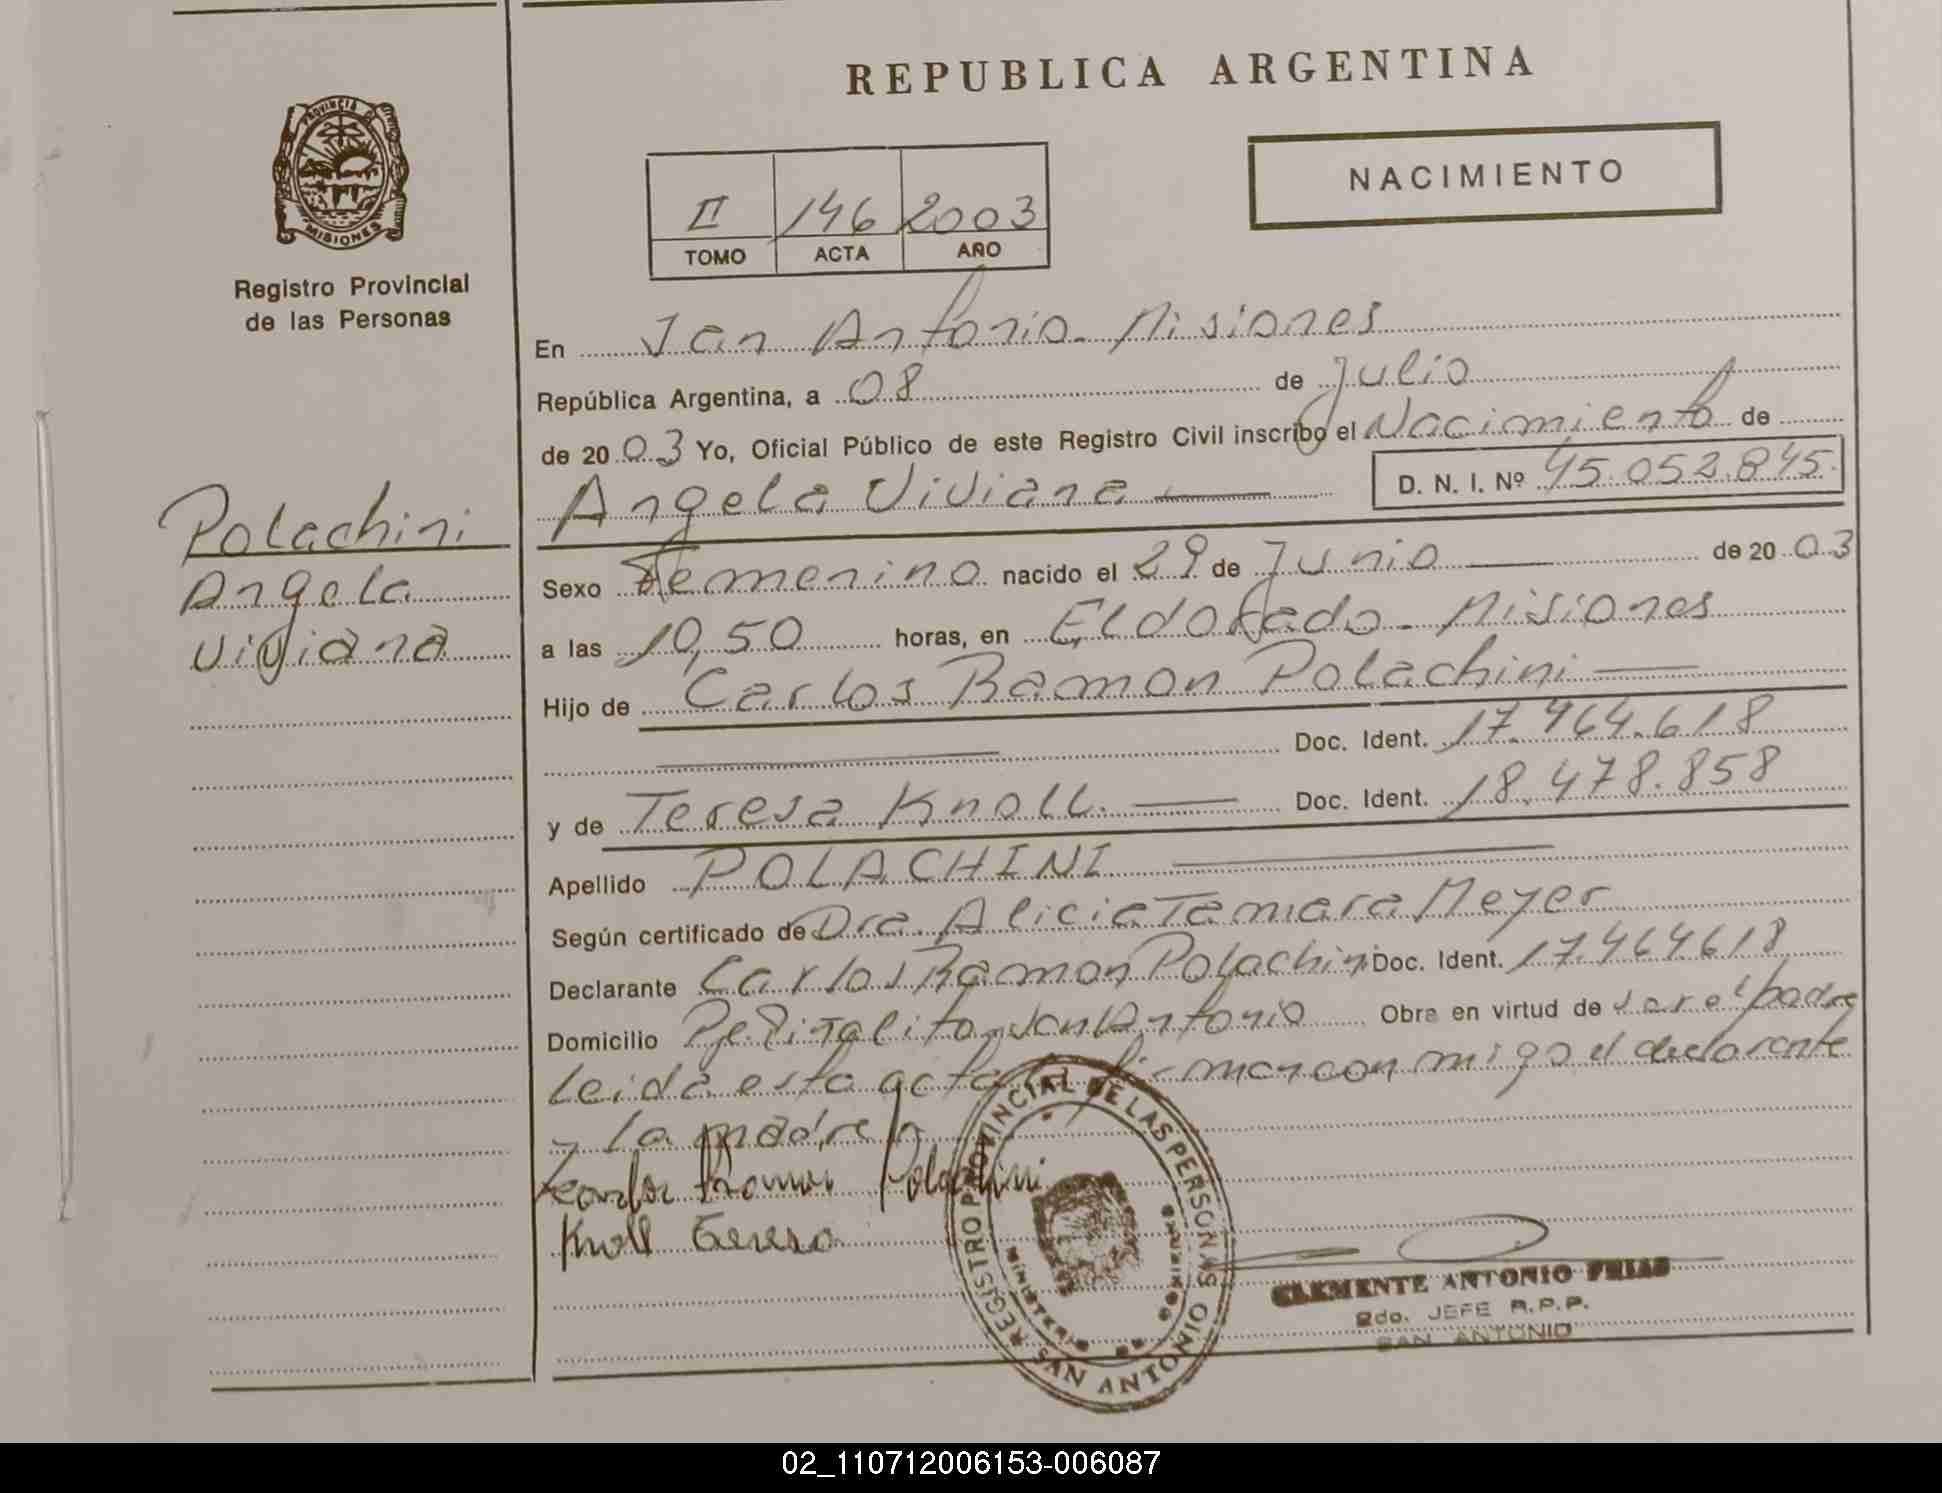 REPUBLICA ARGENTINA
PROVINCIA DE
MISIONES
Registro Provincial
de las Personas
NACIMIENTO
II 146 2003
TOMO ACTA AÑO
En San Antonio - Misiones
República Argentina, a 08 de Julio
de 2003 Yo, Oficial Público de este Registro Civil inscribo el Nacimiento de
Angela Viviana D. N. I. Nº 45.052.845
Polachini
Angela
Viviana
Sexo Femenino nacido el 29 de Junio de 2003
a las 10,50 horas, en Eldorado - Misiones
Hijo de Carlos Ramon Polachini
Doc. Ident. 17.464.618
y de Teresa Knoll. Doc. Ident. 18.478.858
Apellido POLACHINI
Según certificado de Dra. Alicia Tamara Meyer
Declarante Carlos Ramon Polachini Doc. Ident. 17.464.618
Domicilio Pje. Piñalito - San Antonio Obra en virtud de ser el padre
Leida esta acta la firman con migo el declarante
y la madre
Carlos Ramon Polachini
Knoll Teresa
REGISTRO PROVINCIAL DE LAS PERSONAS
SAN ANTONIO
CLEMENTE ANTONIO FRIAS
2do. JEFE R.P.P.
SAN ANTONIO
02_110712006153-006087